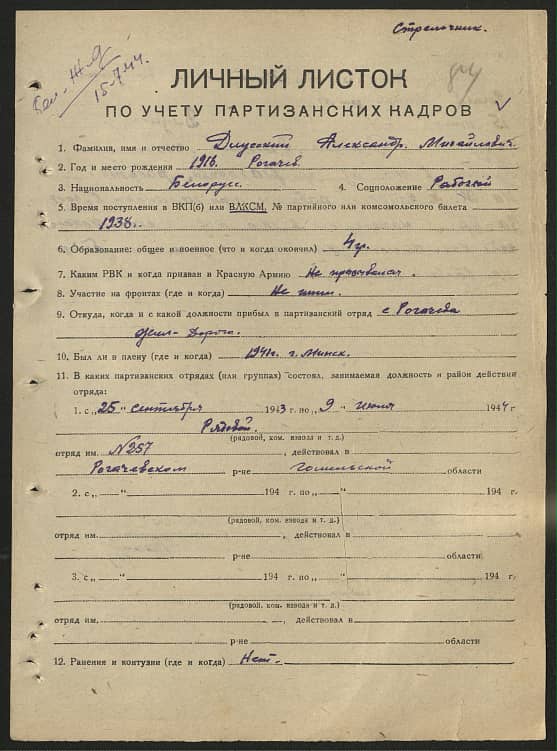 Стрелочник.
Бел. Ж-Д
15-7-44.
ЛИЧНЫЙ ЛИСТОК
ПО УЧЕТУ ПАРТИЗАНСКИХ КАДРОВ
1. Фамилия, имя и отчество Александр Михайлович
2. Год и место рождения 1916. Рогачев.
3. Национальность Белорусс. 4. Соцположение Рабочий
5. Время поступления в ВКП(б) или ВЛКСМ, № партийного или комсомольского билета
1938г.
6. Образование: общее и военное (что и когда окончил) 4 гр.
7. Каким РВК и когда призван в Красную Армию Не призывался.
8. Участие на фронтах (где и когда) Не
9. Откуда, когда и с какой должности прибыл в партизанский отряд с Рогачева
Жел-Дорога.
10. Был ли в плену (где и когда) г. Минск.
11. В каких партизанских отрядах (или группах) состоял, занимаемая должность и район действия
отряда:
1. с „25" сентября 1943 г. по „9" июля 1944 г
Рядовой.
(рядовой, ком. взвода и т. д.)
отряд им. №257, действовал в
Рогачевском р-не Гомельской области
2. с „ — " 194 г. по „ — " 194 г.
(рядовой, ком. взвода и т. д.)
отряд им. , действовал в
р-не области.
3. с „ — " 194 г. по „ — " 194 г.
(рядовой, ком. взвода и т. д.)
отряд им. , действовал в
р-не области
12. Ранения и контузии (где и когда) Нет.